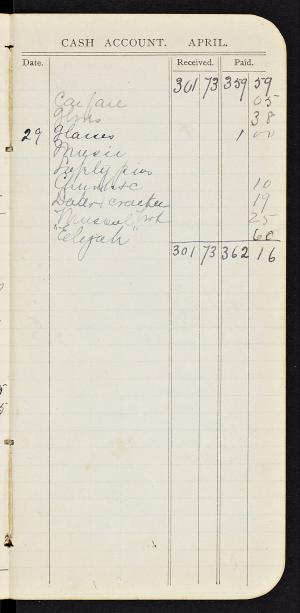 CASH ACCOUNT. APRIL.
Date. Received. Paid.
301 73 359 59
Carfare 05
38
29 Glasses 1 00
Music
Safety pins
Church &c 10
crackers 19
25
"Elijah" 60
301 73 362 16